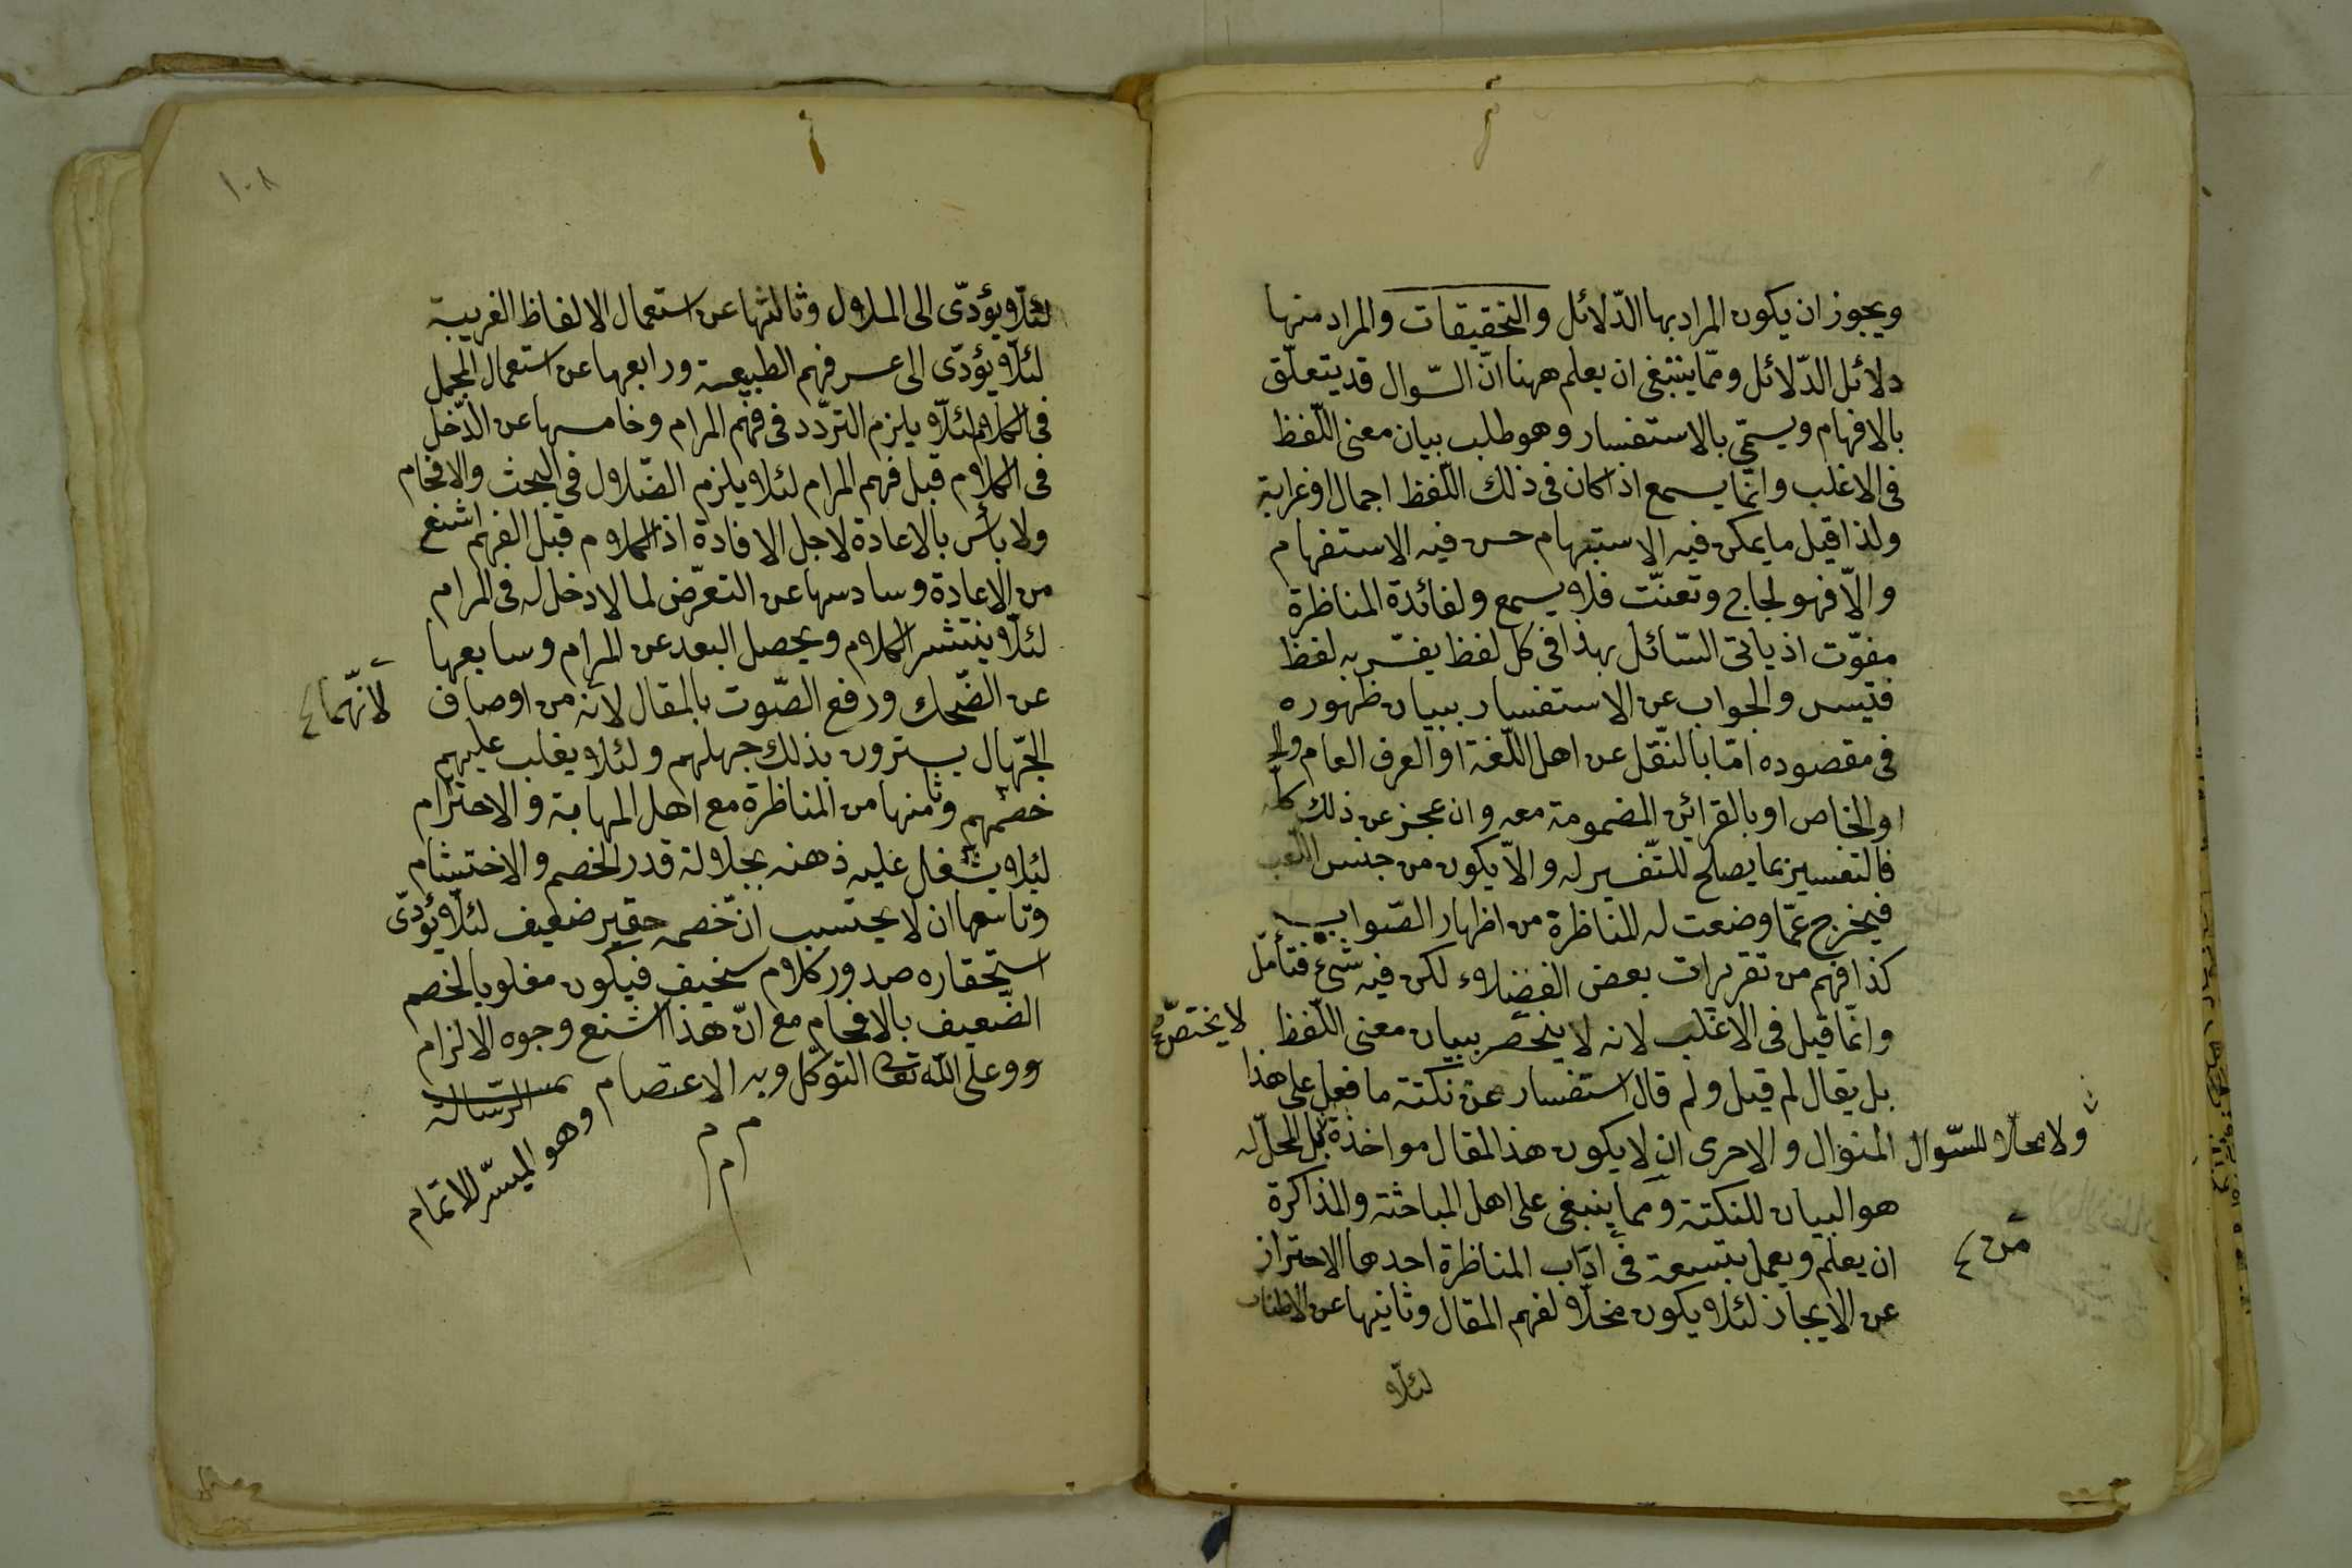 ويجوز ان يكون المراد بها الدّلائل والتحقيقات والمراد منها
دلائل الدّلائل وممّا ينبغى ان يعلم ههنا انّ السّوال قد يتعلّق
بالافهام ويسمّى بالاستفسار وهو طلب بيان معنى اللّفظ
فى الاغلب وانّما يسمع اذا كان فى ذلك اللّفظ اجمال او غرابة
ولذا قيل ما يمكن فيه الاستبهام حسن فيه الاستفهام
والّا فهو لجاج وتعنّت فلا يسمع ولفائدة المناظرة
مفوّت اذ ياتى السّائل بهذا فى كل لفظ يفسّر به لفظ
فيتسس والجواب عن الاستفسار ببيان ظهوره
فى مقصوده امّا بالنّقل عن اهل اللّغة او العرف العام
او الخاص او بالقرائن المضمومة معه وان عجز عن ذلك كله
فالتفسير بما يصلح للتّفسير له والّا يكون من جنس اللّعب
فيخرج عمّا وضعت له المناظرة من اظهار الصّواب
كذا فهم من تقريرات بعض الفضلاء لكن فيه شئ فتأمّل
وانّما قيل فى الاغلب لانه لا ينحصر ببيان معنى اللّفظ
لا يختصّ
بل يقال لم قيل ولم قال استفسار عن نكتة ما فعل على هذا
المنوال والاحرى ان لا يكون هذا المقال مواخذة بل المحلّ له
ولا محلا للسّوال
هو البيان للنكتة ومما ينبغى على اهل المباحثة والمذاكرة
ان يعلم ويعمل بتسعة فى آداب المناظرة احدها الاحتراز
من
عن الايجاز لئلا يكون مخلّا لفهم المقال وثانيها عن الاطناب
لئلّا
١٠٨
لئلّا يؤدّى الى الملال وثالثها عن استعمال الالفاظ الغريبة
لئلّا يؤدّى الى عسر فهم الطبيعة ورابعها عن استعمال المجمل
فى الكلام لئلّا يلزم التردّد فى فهم المرام وخامسها عن الدّخل
فى الكلام قبل فهم المرام لئلا يلزم الضّلال فى البحث والافحام
ولا بأس بالاعادة لاجل الافادة اذ الكلام قبل الفهم اشنع
من الاعادة وسادسها عن التعرّض لما لا دخل له فى المرام
لئلّا ينتشر الكلام ويحصل البعد عن المرام وسابعها
عن الضّحك ورفع الصّوت بالمقال لانه من اوصاف
لانّهما
الجهّال يسترون بذلك جهلهم ولئلا يغلب عليهم
خصمهم وثامنها من المناظرة مع اهل المهابة والاحترام
لئلا يشغل عليه ذهنه بجلالة قدر الخصم والاحتشام
وتاسعها ان لا يحتسب انّ خصمه حقير ضعيف لئلّا يؤدّى
استحقاره صدور كلام سخيف فيكون مغلوبا لخصم
الضّعيف بالافحام مع انّ هذا اشنع وجوه الالزام
ووعلى اللّه تعالى التوكّل وبه الاعتصام تمت الرّسالة
وهو الميسّر للاتمام
م م
م